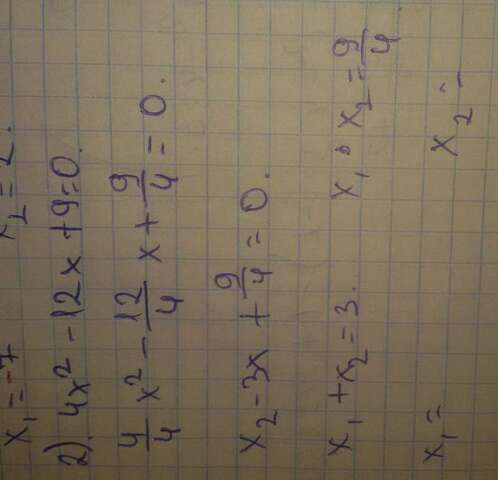 x₁ = -7 x₂ = 2.
2). 4x² - 12x + 9 = 0.
4/4 x² - 12/4 x + 9/4 = 0.
x₂ - 3x + 9/4 = 0.
x₁ + x₂ = 3. x₁ • x₂ = 9/4
x₁ = x₂ =